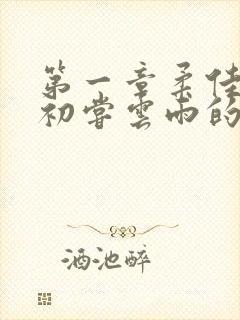 第一章柔佳
初尝雲雨的
酒池醉